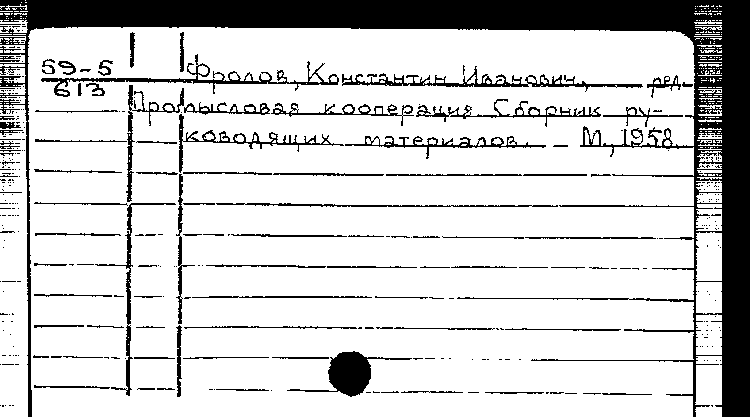 59-5
613
Фролов, Константин Иванович, ред.
Промысловая кооперация Сборник ру-
ководящих материалов. – М., 1958.